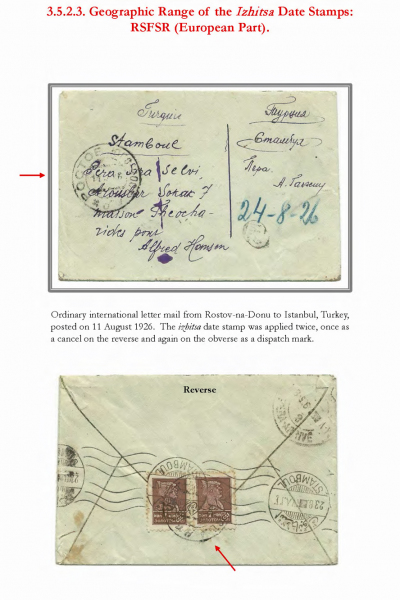 3.5.2.3. Geographic Range of the Izhitsa Date Stamps:
RSFSR (European Part).
Turquie
Stamboul
Pera, Sira Selvi,
Sokak 7
maison Theocha-
rides pour
Alfred Hansen
Турция
Стамбул
Пера.
А. Гансену
24-8-26
РОСТОВ
Ordinary international letter mail from Rostov-na-Donu to Istanbul, Turkey,
posted on 11 August 1926. The izhitsa date stamp was applied twice, once as
a cancel on the reverse and again on the obverse as a dispatch mark.
Reverse
STAMBOUL
STAMBOUL